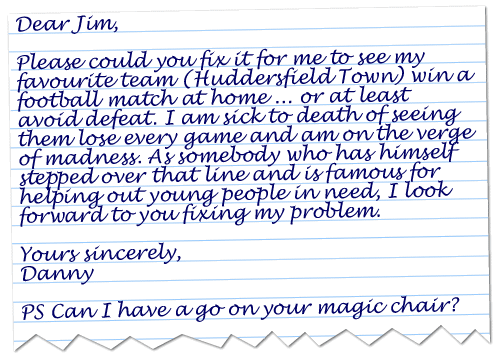 Dear Jim,
Please could you fix it for me to see my
favourite team (Huddersfield Town) win a
football match at home ... or at least
avoid defeat. I am sick to death of seeing
them lose every game and am on the verge
of madness. As somebody who has himself
stepped over that line and is famous for
helping out young people in need, I look
forward to you fixing my problem.
Yours sincerely,
Danny
PS Can I have a go on your magic chair?